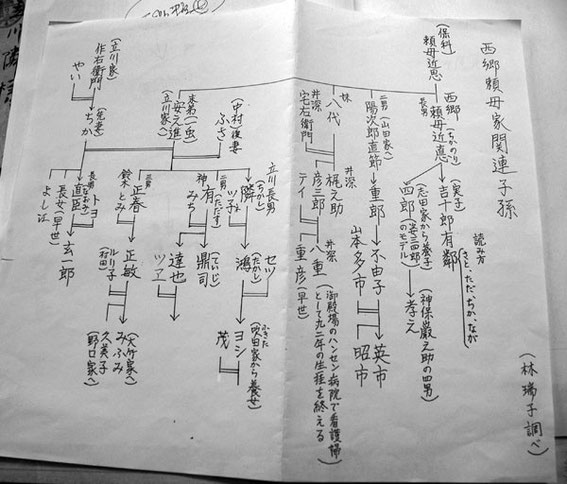 西郷頼母家関連子孫
読み方
さと、ただ ちか、なが
(林 瑞子調べ)
(保科)
頼母近思
長男
西郷
頼母近悳
(ちかのり)
(実子)
吉十郎有鄰
(志田家から養子)
四郎
(姿三四郎のモデル)
(神保巌之助の四男)
孝え
二男(山田家へ)
陽次郎直節
重郎
不由子
英市
山本多市
昭市
妹
八代
井深
宅右衛門
井深
梶之助
彦三郎
テイ
井深
八重
重彦(早世)
(御殿場のハンセン病院で看護婦として九二年の生涯を終える)
末弟一虫
安之進
(立川家へ)
(中村)後妻
ふさ
(立川家)
作右衛門
やい
(先妻)
ちか
立川長男
隣
(ちかし)
ツ子
セツ
鴻
(たかし)
(吹田家から養女)
ふきた
ヨシ
茂
二男
有
(ただす)
神
みち
鼎司
(ていじ)
達也
ツヱ
三男
正春
鈴木とみ
正敏
ルリ子
(村田)
みふみ
久美子
(野口家へ)
長男
直臣
(なおおみ)
トヨ
玄一郎
長女(早世)
よし江